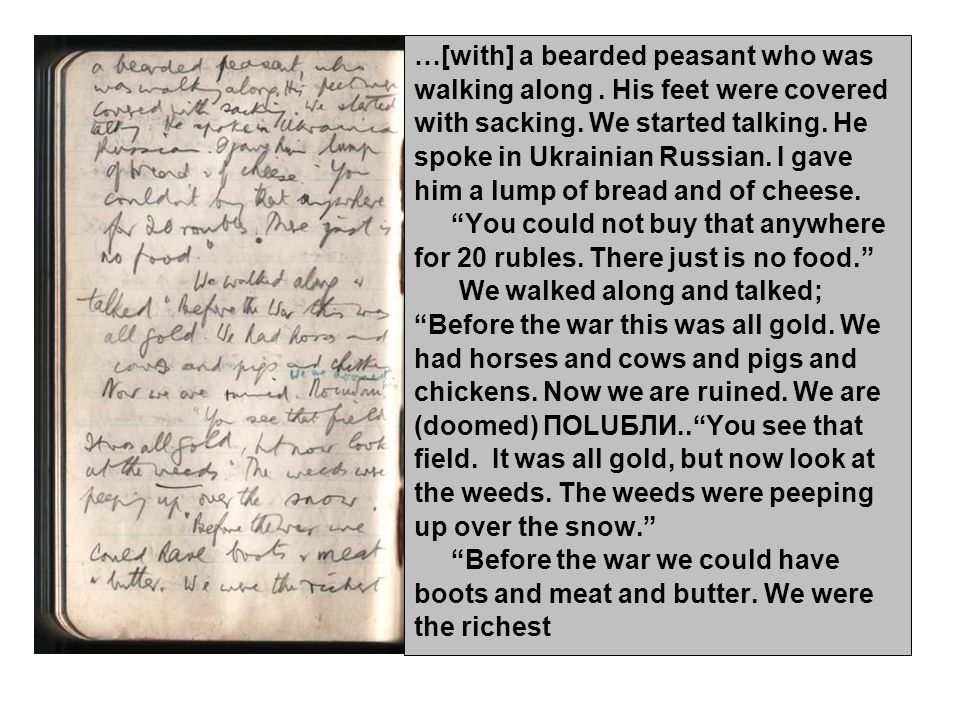 a bearded peasant, who
was walking along. His feet were
covered with sacking. We started
talking. He spoke in Ukrainian
Russian. I gave him lump
of bread & of cheese. "You
couldn't buy that anywhere
for 20 roubles. There just is
no food."
We walked along &
talked "Before the War this was
all gold. We had horses and
cows and pigs and
We are doomed
Now we are ruined.
"You see that field
It was all gold, but now look
at the weeds". The weeds were
peeping up over the snow.
"Before the war we
could have boots & meat
& butter. We were the richest
…[with] a bearded peasant who was
walking along . His feet were covered
with sacking. We started talking. He
spoke in Ukrainian Russian. I gave
him a lump of bread and of cheese.
“You could not buy that anywhere
for 20 rubles. There just is no food.”
We walked along and talked;
“Before the war this was all gold. We
had horses and cows and pigs and
chickens. Now we are ruined. We are
(doomed) ПОLUБЛИ..“You see that
field. It was all gold, but now look at
the weeds. The weeds were peeping
up over the snow.”
“Before the war we could have
boots and meat and butter. We were
the richest